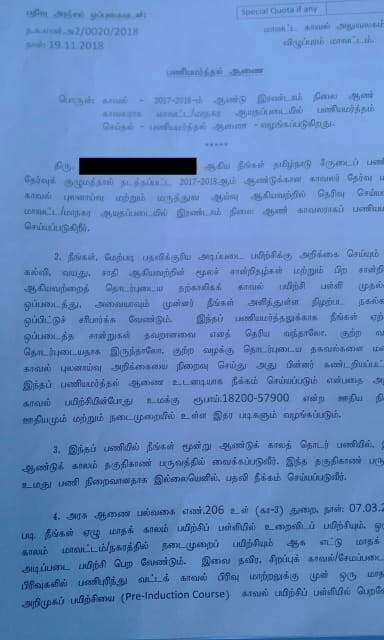 பதிவு அஞ்சல் ஒப்புகையுடன்:
Special Quota if any
மாவட்ட காவல் அலுவலகம்
விழுப்புரம் மாவட்டம்.
ந.க.எண்.அ2/0020/2018
நாள்: 19.11.2018
பணியமர்த்தல் ஆணை
பொருள்: காவல் - 2017-2018-ம் ஆண்டு இரண்டாம் நிலை ஆண்
காவலராக மாவட்ட/மாநகர ஆயுதப்படையில் பணியமர்த்தம்
செய்தல் - பணியமர்த்தல் ஆணை - வழங்கப்படுகிறது.
*****
திரு. ஆகிய நீங்கள் தமிழ்நாடு சீருடைப் பணி
தேர்வுக் குழுமத்தால் நடத்தப்பட்ட 2017-2018ஆம் ஆண்டுக்கான காவலர் தேர்வு
காவல் புலனாய்வு மற்றும் மருத்துவ ஆய்வு ஆகியவற்றில் தெரிவு செய்ய
மாவட்ட/மாநகர ஆயுதப்படையில் இரண்டாம் நிலை ஆண் காவலராகப் பணிய
செய்யப்படுகிறீர்.
2. நீங்கள், மேற்படி பதவிக்குரிய அடிப்படை பயிற்சிக்கு அறிக்கை செய்யும்
கல்வி, வயது, சாதி ஆகியவற்றின் மூலச் சான்றிதழ்கள் மற்றும் பிற சான்றி
ஆகியவற்றைத் தொடர்புடைய தற்காலிகக் காவல் பயிற்சி பள்ளி முதல்
ஒப்படைத்து, அவையாவும் முன்னர் நீங்கள் அளித்துள்ள நிழற்பட நகல்க
ஒப்பிட்டுச் சரிபார்க்க வேண்டும். இந்தப் பணியமர்த்தலுக்காக நீங்கள் ஏற்
ஒப்படைத்த சான்றுகள் தவறானவை எனத் தெரிய வந்தாலோ, குற்ற வ
தொடர்புடையதாக இருந்தாலோ, குற்ற வழக்கு தொடர்புடைய தகவல்களை ம
காவல் புலனாய்வு அறிக்கையை நிறைவு செய்து அது பின்னர் கண்டறியப்பட்
இந்தப் பணியமர்த்தல் ஆணை உடனடியாக நீக்கம் செய்யப்படும் என்பதை அ
காவல் பயிற்சியின்போது உமக்கு ரூபாய்.18200-57900 என்ற ஊதிய நி
ஊதியமும் மற்றும் நடைமுறையில் உள்ள இதர படிகளும் வழங்கப்படும்.
3. இந்தப் பணியில் நீங்கள் மூன்று ஆண்டுக் காலத் தொடர் பணியில்,
ஆண்டுக் காலம் தகுதிகாண் பருவத்தில் வைக்கப்படுவீர். இந்த தகுதிகாண் பரு
உமது பணி நிறைவானதாக இல்லையெனில், பதவி நீக்கம் செய்யப்படுவீர்.
4. அரசு ஆணை பல்வகை எண்.206 உள் (கா-3) துறை, நாள்: 07.03.2
படி நீங்கள் ஏழு மாதக் காலம் பயிற்சிப் பள்ளியில் உறைவிடப் பயிற்சியும், ஒ
காலம் மாவட்டம்/நகரத்தில் நடைமுறைப் பயிற்சியும் ஆக எட்டு மாதக்
அடிப்படை பயிற்சி பெற வேண்டும். இவை தவிர, சிறப்புக் காவல்/சேமப்படை
பிரிவுகளில் பணிபுரிந்து வட்டக் காவல் பிரிவு மாற்றலுக்கு முன் ஒரு மாத
அறிமுகப் பயிற்சியை (Pre-Induction Course) காவல் பயிற்சிப் பள்ளியில் பெறவே